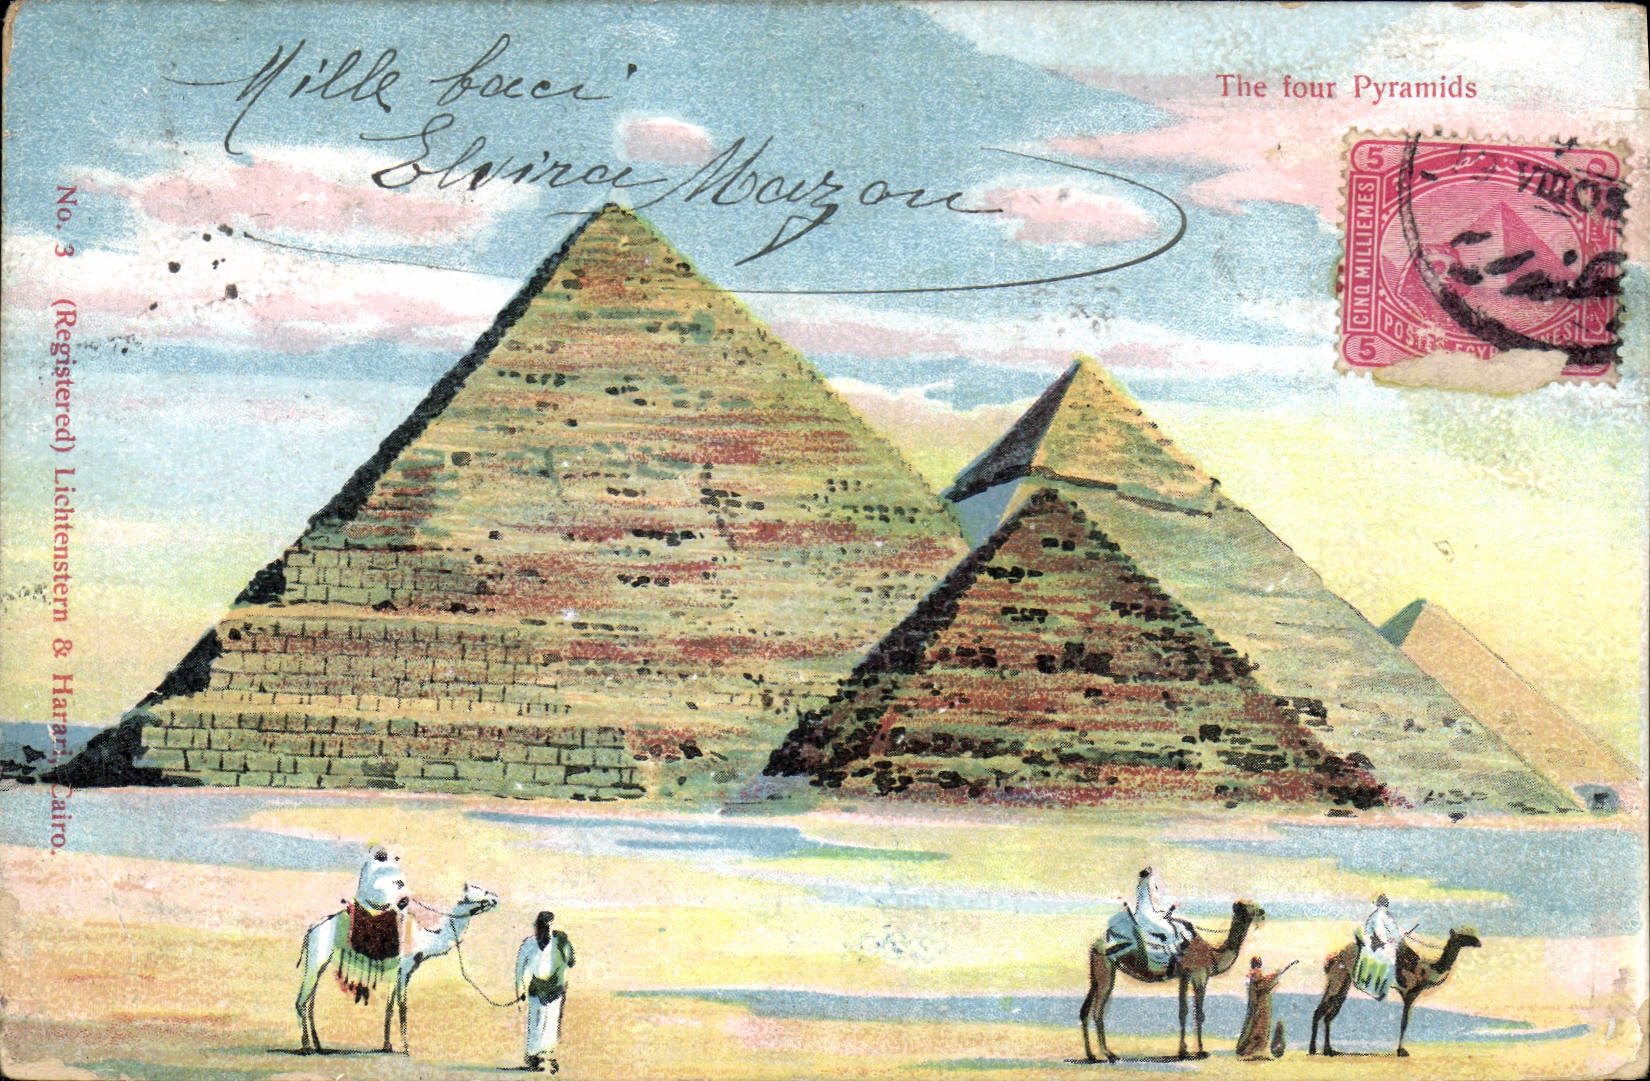 Mille baci
Elvira Mazon
The four Pyramids
5
CINQ MILLIEMES
5
POSTES
No. 3 (Registered) Lichtenstern & Harari, Cairo.